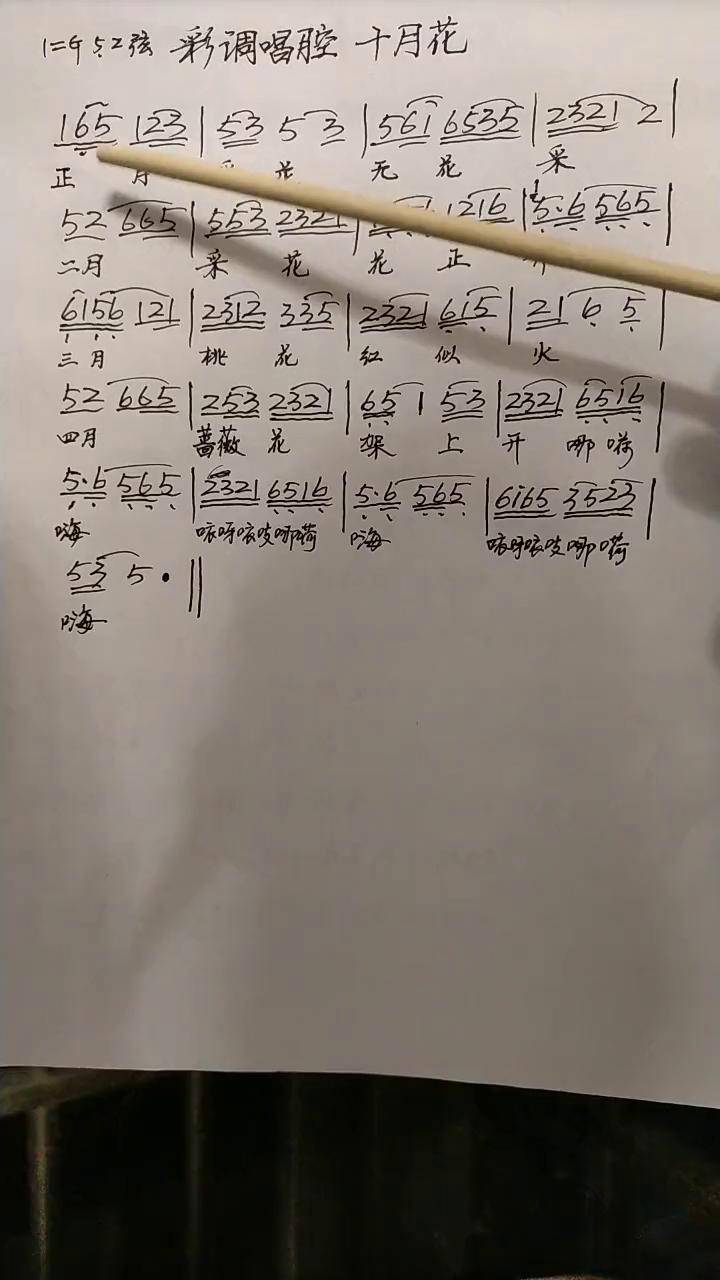 1=G 5̣2弦 彩调唱腔 十月花
165 123 | 53 5 3 | 561̇ 6535 | 2321 2 |
正 月 花 无 花 采
52 665 | 553 2321 | 1216 | 5·6 565 |
二月 采 花 花 正
6156 121 | 2312 335 | 2321 615 | 21 6 5 |
三月 桃 花 红 似 火
52 665 | 253 2321 | 65 1 53 | 2321 6516 |
四月 蔷薇 花 架 上 开 哪 嗬
5·6 565 | 2321 6516 | 5·6 565 | 61̇65 3523 |
嗨 咳呀咳吱哪荷 嗨 咳呀咳吱哪嗬
53 5 · ||
嗨